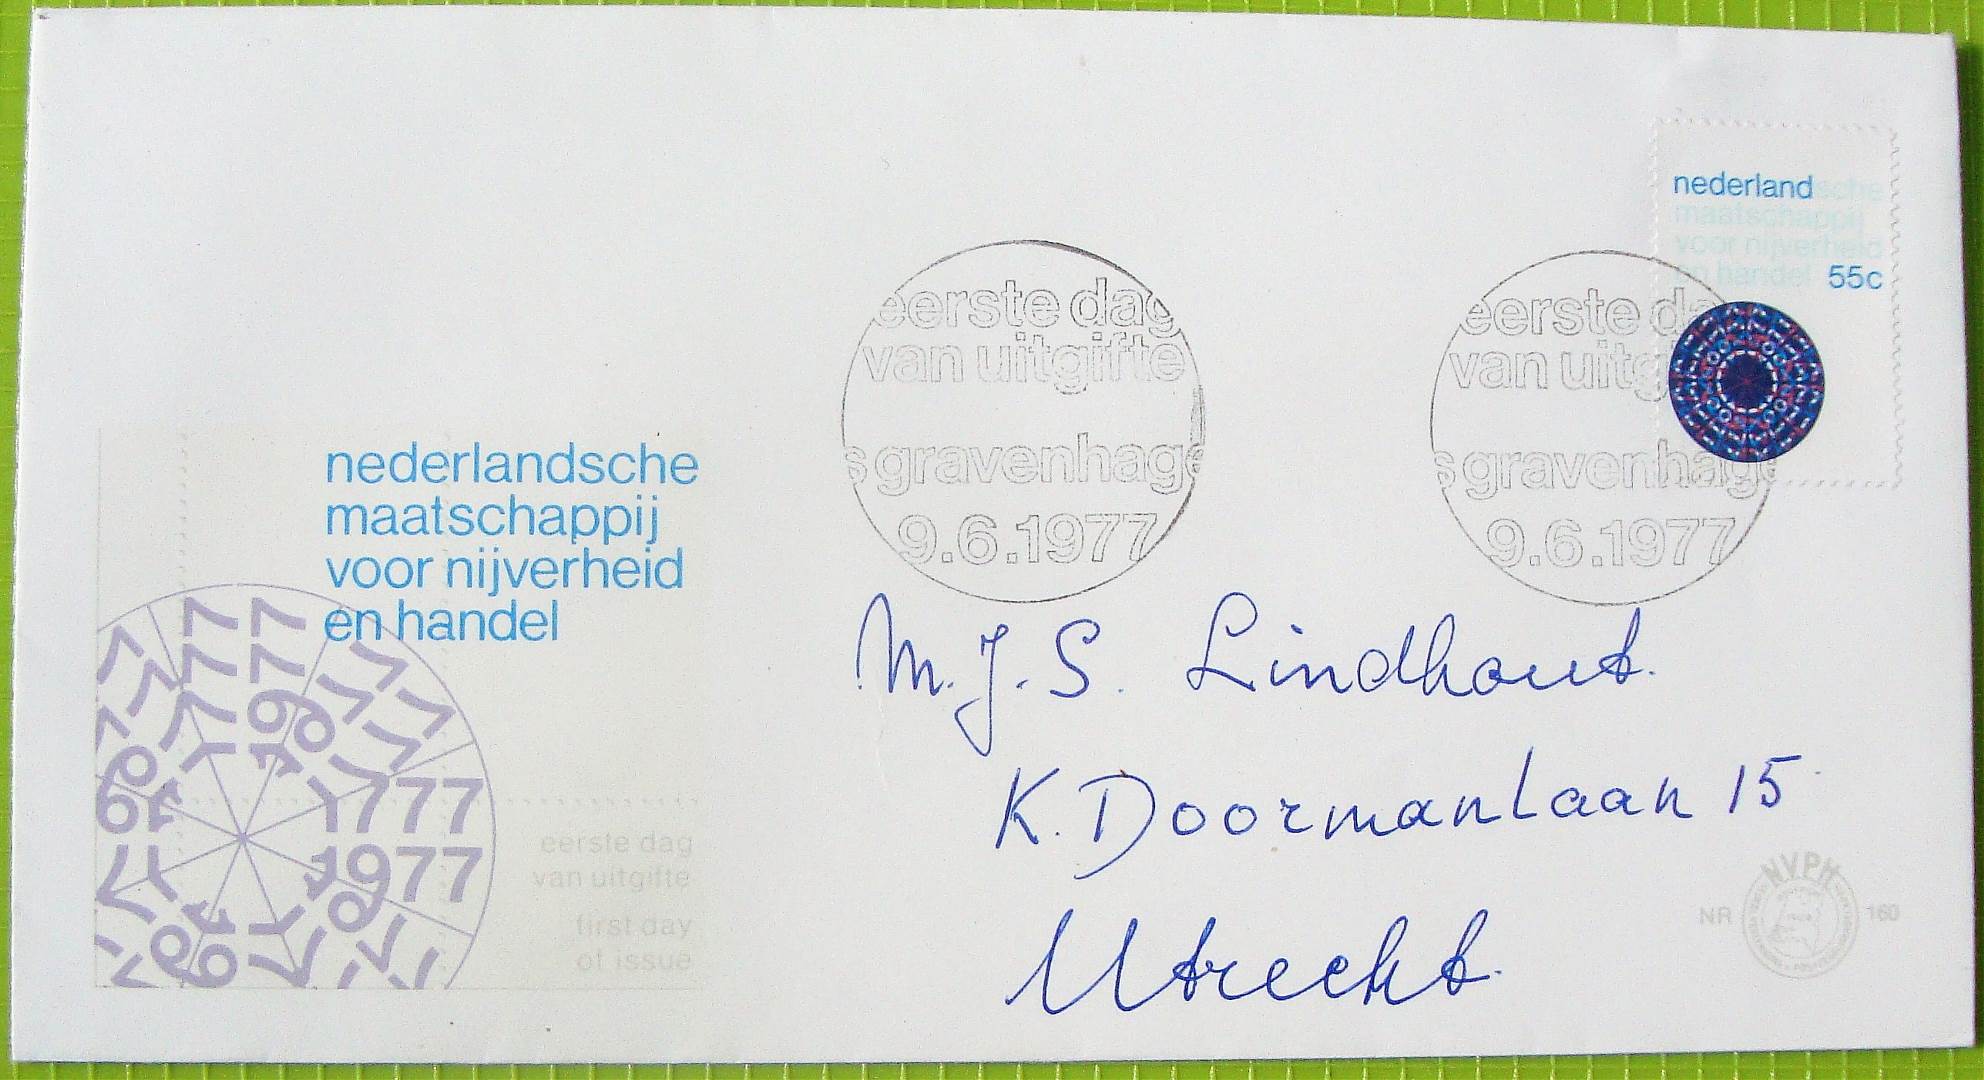 nederlandsche
maatschappij
voor nijverheid
en handel
1977
1977
eerste dag
van uitgifte
first day
of issue
eerste dag
van uitgifte
s gravenhage
9.6.1977
eerste da
van uitg
s gravenhage
9.6.1977
nederlandsche
maatschappij
voor nijverheid
en handel 55c
M.J.S. Lindhout.
K. Doormanlaan 15
Utrecht.
NVPH
NR 160